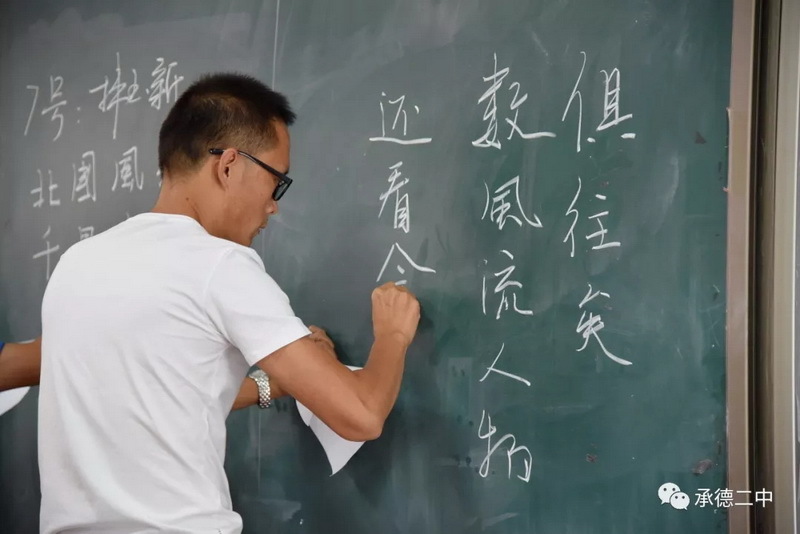 7号: 新
北国風
千里
俱往矣
数風流人物
还看今
承德二中